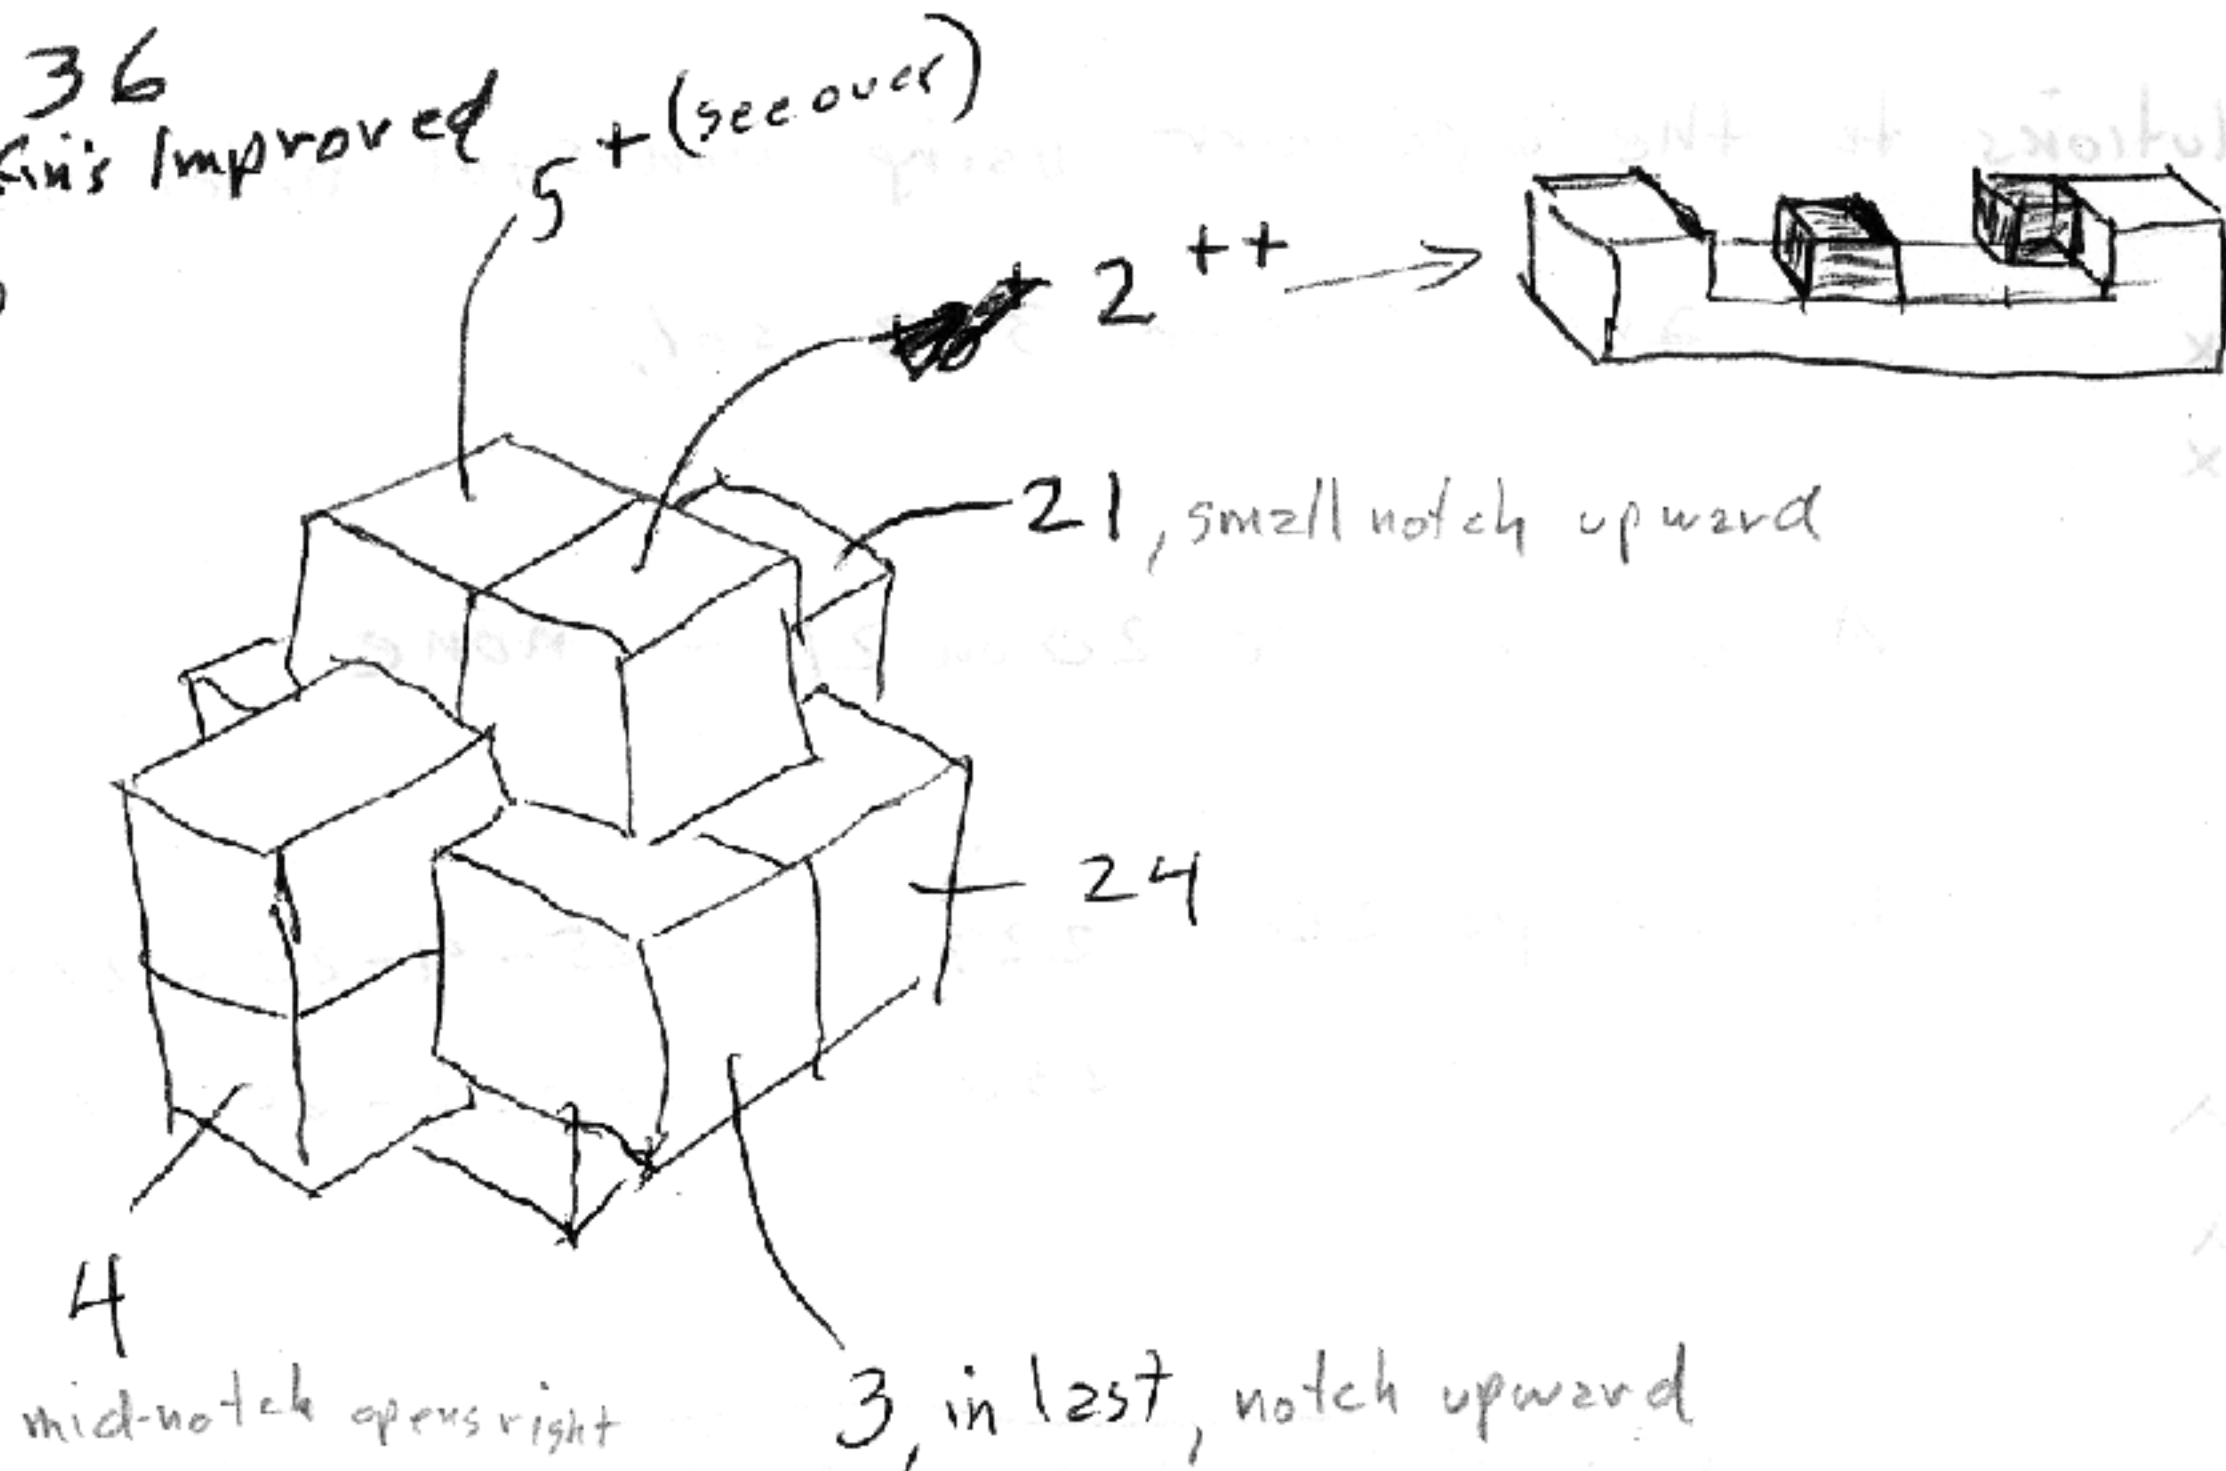 36
Improved
5 + (see over)
2 ++
21, small notch upward
24
4
mid-notch opens right
3, in last, notch upward